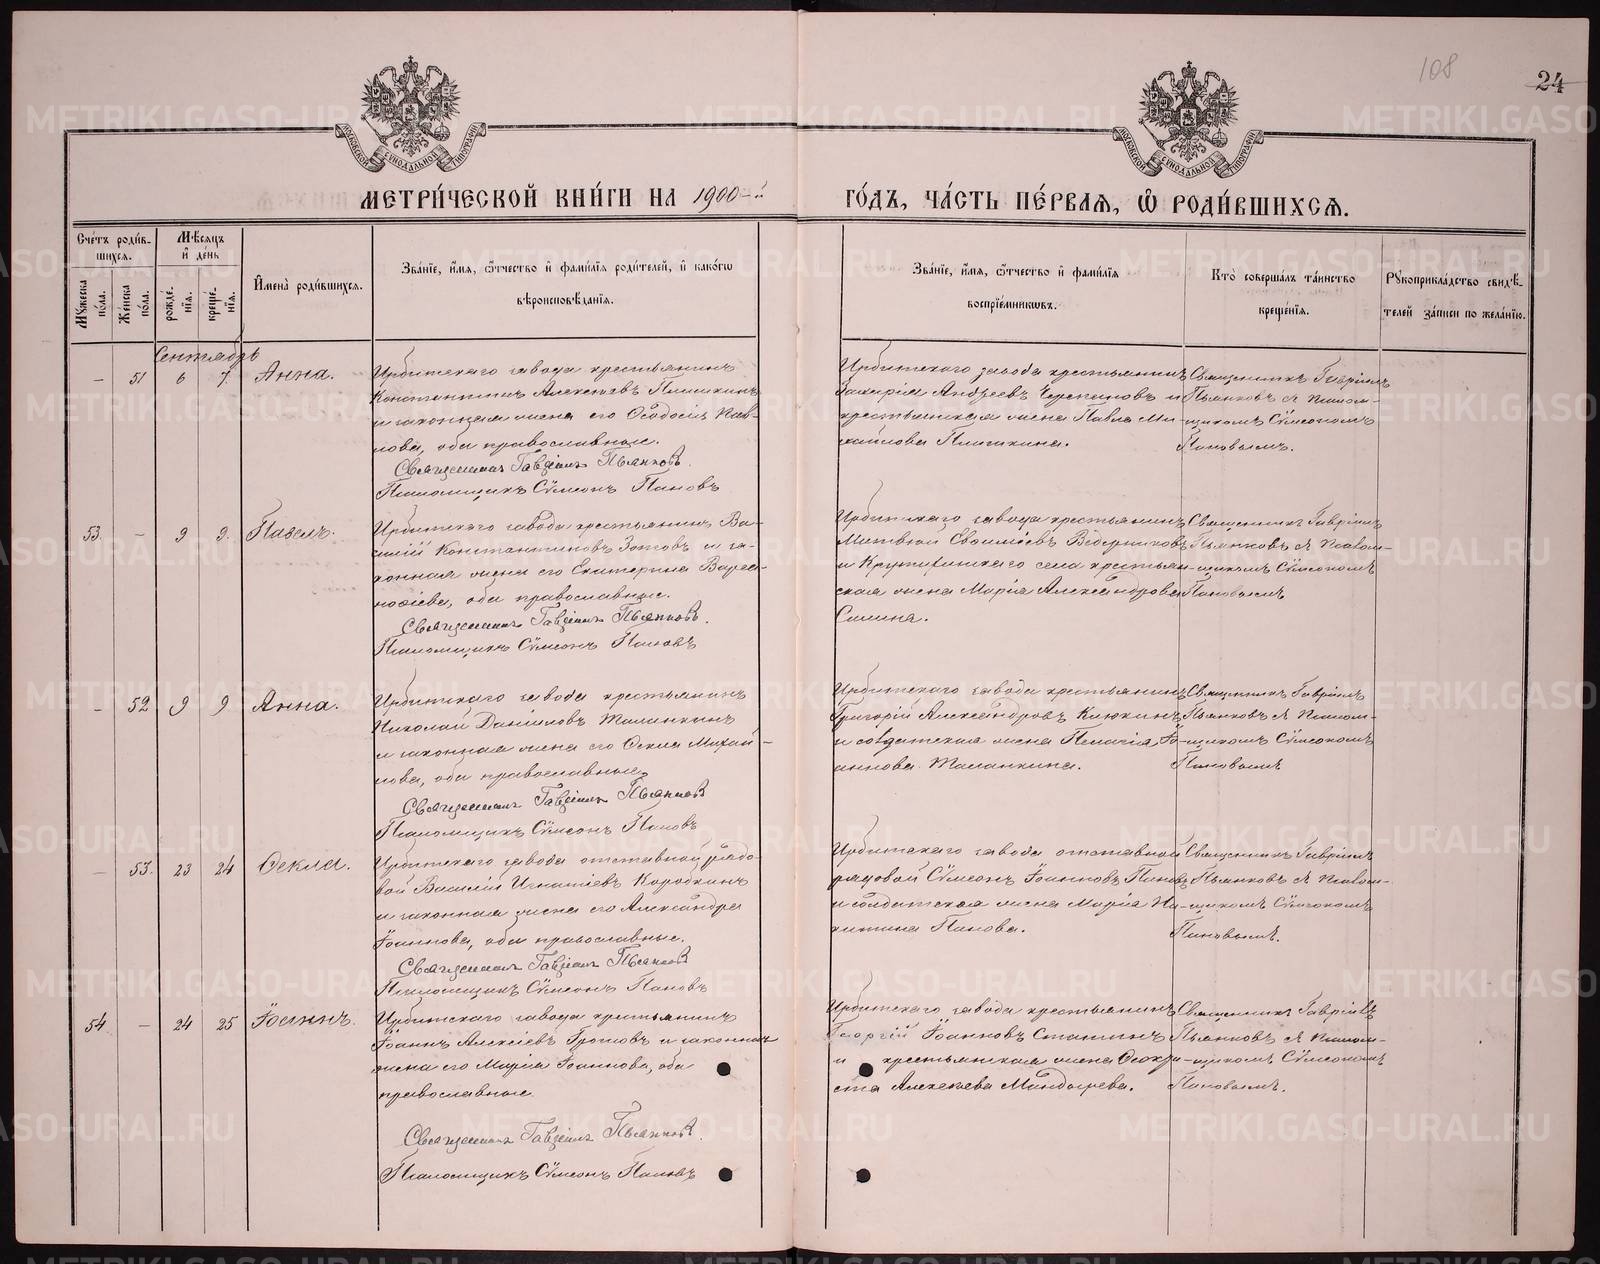 108
24
МОСКОВСКОЙ СѴНОДАЛЬНОЙ ТИПОГРАФІИ
МОСКОВСКОЙ СѴНОДАЛЬНОЙ ТИПОГРАФІИ
МЕТРИ́ЧЕСКОЙ КНИ́ГИ НА 1900-й
ГО́ДЪ, ЧА́СТЬ ПЕ́РВАЯ, Ѡ҆ РОДИ́ВШИХСЯ.
Сче́тъ роди́в-
шихся.
Му́жеска по́ла.
Же́нска по́ла.
Мѣ́сяцъ
и҆ де́нь
рожде́-
нїя.
креще́-
нїя.
И҆мена̀ роди́вшихся.
Зва́нїе, и҆́мя, ѻ҆́тчество и҆ фами́лїя роди́телей, и҆ како́гѡ
вѣроисповѣ́данїя.
Зва́нїе, и҆́мя, ѻ҆́тчество и҆ фами́лїя
воспрїе́мниковъ.
Кто̀ соверша́лъ та́инство
креще́нїя.
Рꙋкоприкла́дство свидѣ́-
телей за́писи по жела́нїю.
Сентябрь
— 51 6 7 Анна.
Ирбитскаго завода крестьянинъ
Константинъ Алексѣевъ Пинигинъ
и законная жена его Ѳеодосія Пав-
лова, оба православные.
Священникъ Гавріилъ Пьянковъ.
Псаломщикъ Сѵмеонъ Пановъ
Ирбитскаго завода крестьянинъ
Захарій Андреевъ Черепановъ и
крестьянская жена Павла Ми-
хайлова Пинигина.
Священникъ Гавріилъ
Пьянковъ съ псалом-
щикомъ Сѵмеономъ
Пановымъ.
53. — 9 9 Павелъ.
Ирбитскаго завода крестьянинъ Ва-
силій Константиновъ Зотовъ и за-
конная жена его Екатерина Варѳо-
оба православные.
Священникъ Гавріилъ Пьянковъ.
Псаломщикъ Сѵмеонъ Пановъ
Ирбитскаго завода крестьянинъ
Матвѣй
и села крестьян-
ская жена Марія Александрова
Силина.
Священникъ Гавріилъ
Пьянковъ съ псалом-
щикомъ Сѵмеономъ
Пановымъ
— 52 9 9 Анна.
Ирбитскаго завода крестьянинъ
Николай Даніиловъ Таланкинъ
и законная жена его Ѳекла Михай-
лова, оба православные.
Священникъ Гавріилъ Пьянковъ
Псаломщикъ Сѵмеонъ Пановъ
Ирбитскаго завода крестьянинъ
Григорій Александровъ Клюкинъ
и солдатская жена Пелагія Іо-
аннова Таланкина.
Священникъ Гавріилъ
Пьянковъ съ псалом-
щикомъ Сѵмеономъ
Пановымъ
— 53. 23 24 Ѳекла.
Ирбитскаго завода отставной рядо-
вой Василій Игнатіевъ Коробкинъ
и законная жена его Александра
Іоаннова, оба православные.
Священникъ Гавріилъ Пьянковъ
Псаломщикъ Сѵмеонъ Пановъ
Ирбитскаго завода отставной
рядовой Сѵмеонъ Іоанновъ Пановъ
и солдатская жена Марія Ни-
китина Панова.
Священникъ Гавріилъ
Пьянковъ съ псалом-
щикомъ Сѵмеономъ
Пановымъ.
54 — 24 25 Іоаннъ.
Ирбитскаго завода крестьянинъ
Іоаннъ Алексіевъ и законная
жена его Марія Іоаннова, оба
православные.
Священникъ Гавріилъ Пьянковъ.
Псаломщикъ Сѵмеонъ Пановъ
Ирбитскаго завода крестьянинъ
Георгій Іоанновъ
и крестьянская жена Ѳеокти-
ста Алексѣева
Священникъ Гавріилъ
Пьянковъ съ псалом-
щикомъ Сѵмеономъ
Пановымъ.
METRIKI.GASO-URAL.RU